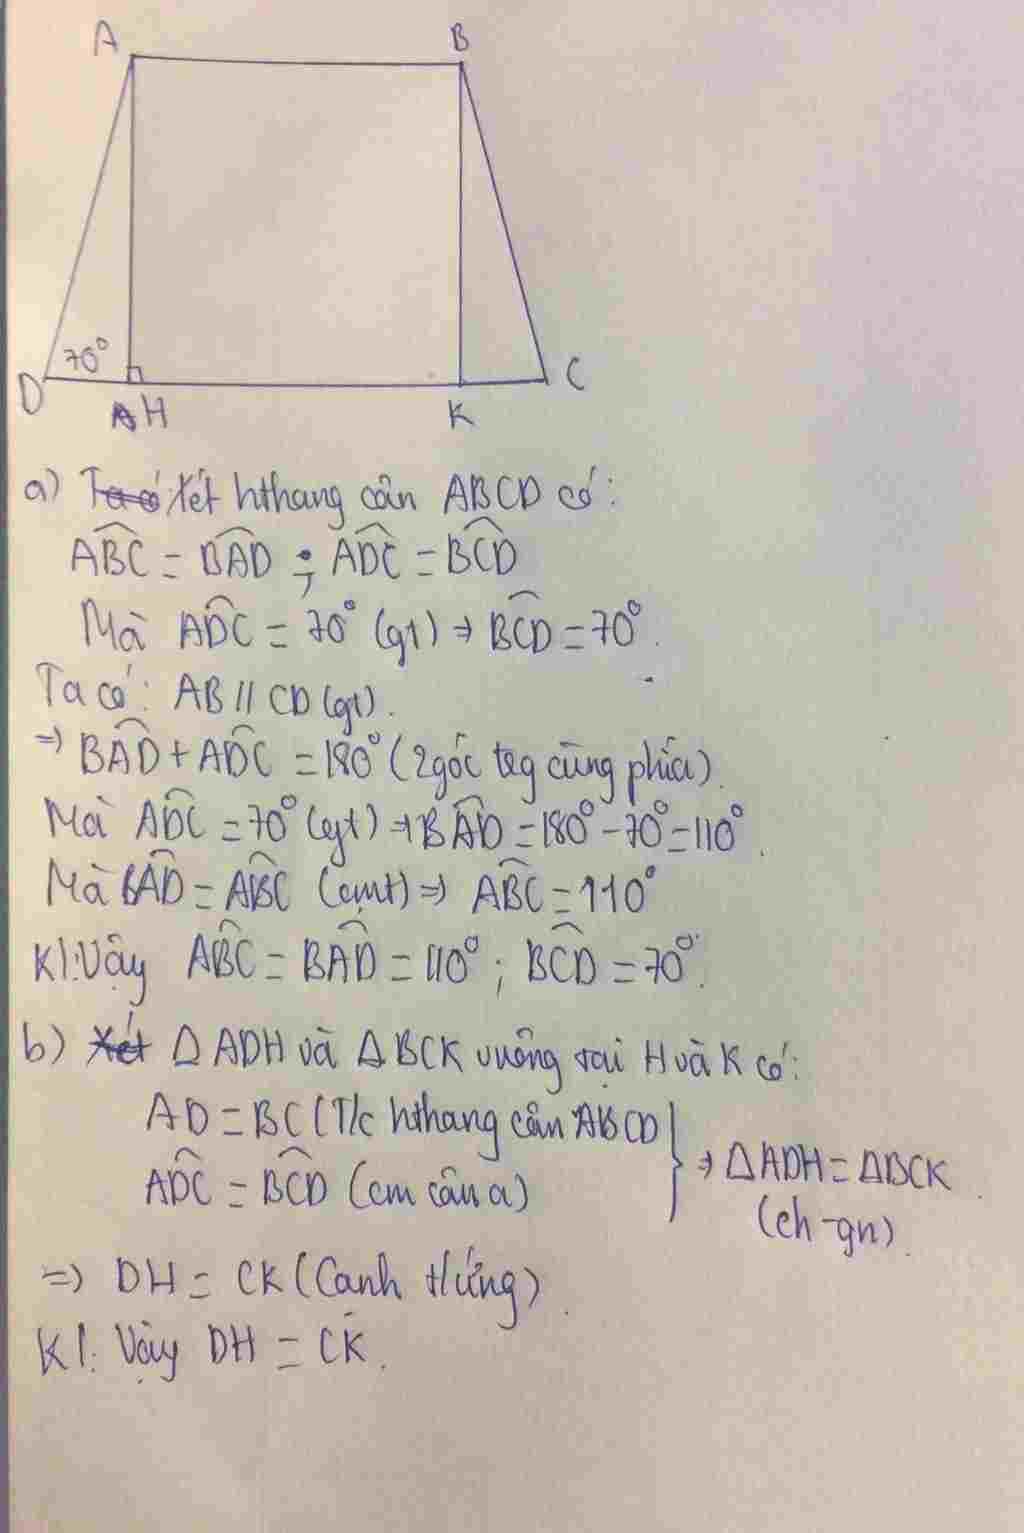 A B
70°
D H K C
a) Xét hthang cân ABCD có:
ABC = BAD ; ADC = BCD
Mà ADC = 70° (gt) ⇒ BCD = 70°.
Ta có: AB // CD (gt).
⇒ BAD + ADC = 180° (2 góc tcg cùng phía).
Mà ADC = 70° (gt) ⇒ BAD = 180° - 70° = 110°.
Mà BAD = ABC (cmt) ⇒ ABC = 110°
Kl: Vậy ABC = BAD = 110° ; BCD = 70°.
b) Δ ADH và Δ BCK vuông tại H và K có:
AD = BC (T/c hthang cân ABCD
ADC = BCD (cm câu a)
⇒ ΔADH = ΔBCK
(ch-gn).
=) DH = CK (Cạnh tứng).
Kl: Vậy DH = CK.